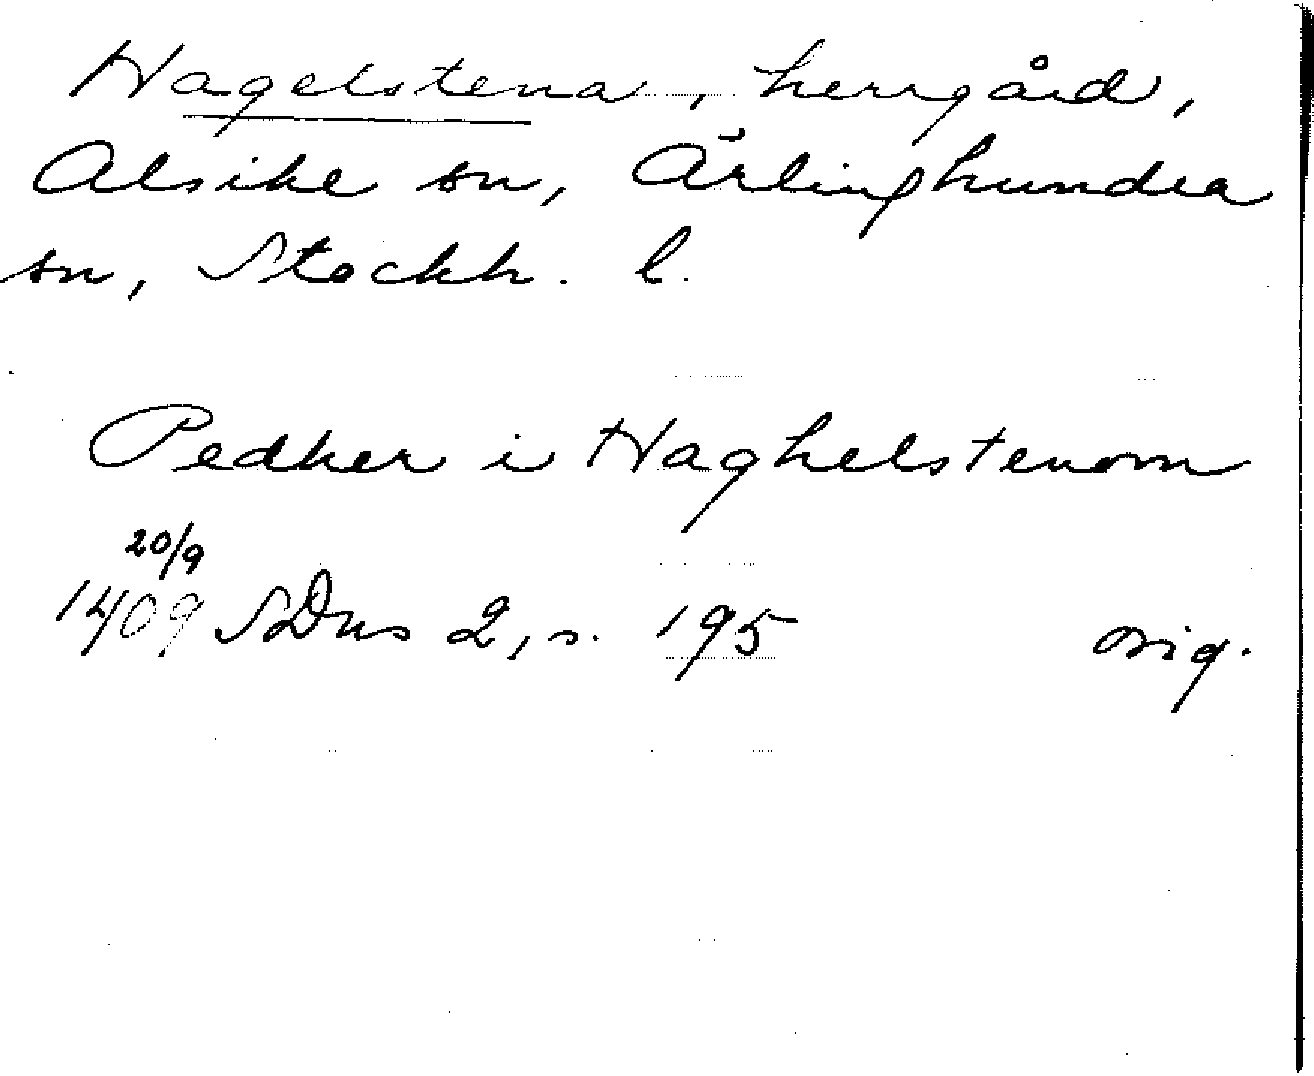 Hagelstena, herrgård,
Alsike sn, Ärlinghundra
sn, Stockh. l.
Pedher i Haghelstenom
20/9
1409 SDns 2, s. 195 orig.